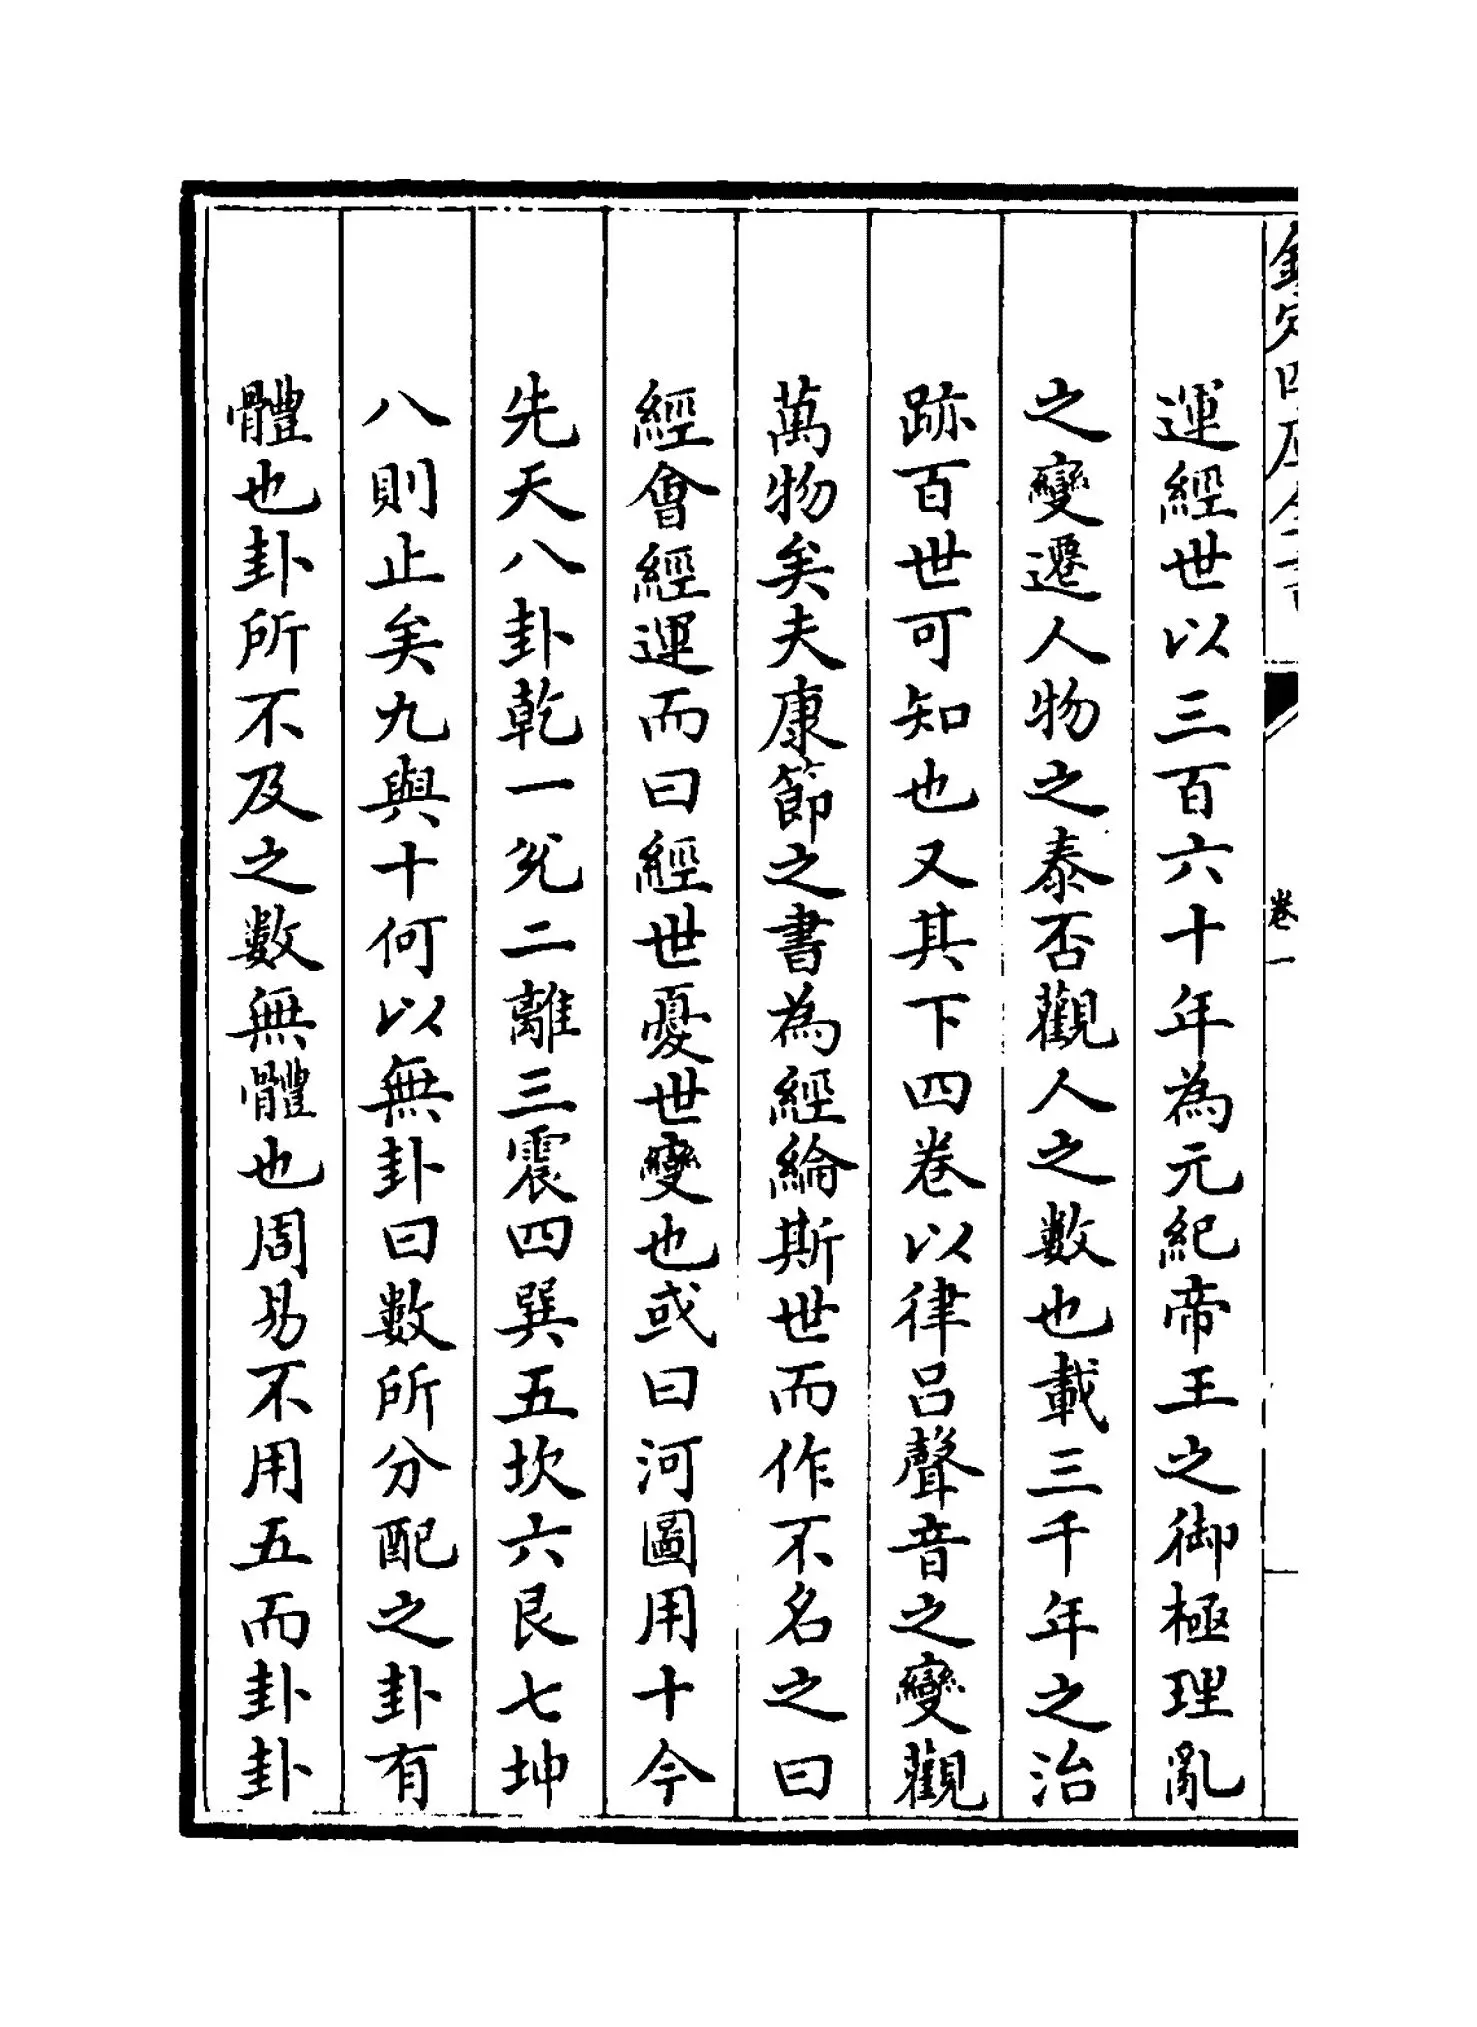 欽定四庫全書
卷一
運經世以三百六十年為元紀帝王之御極理亂
之變遷人物之泰否觀人之數也載三千年之治
跡百世可知也又其下四卷以律呂聲音之變觀
萬物矣夫康節之書為經綸斯世而作不名之曰
經會經運而曰經世憂世變也或曰河圖用十今
先天八卦乾一兊二離三震四巽五坎六艮七坤
八則止矣九與十何以無卦曰數所分配之卦有
體也卦所不及之數無體也周易不用五而卦卦